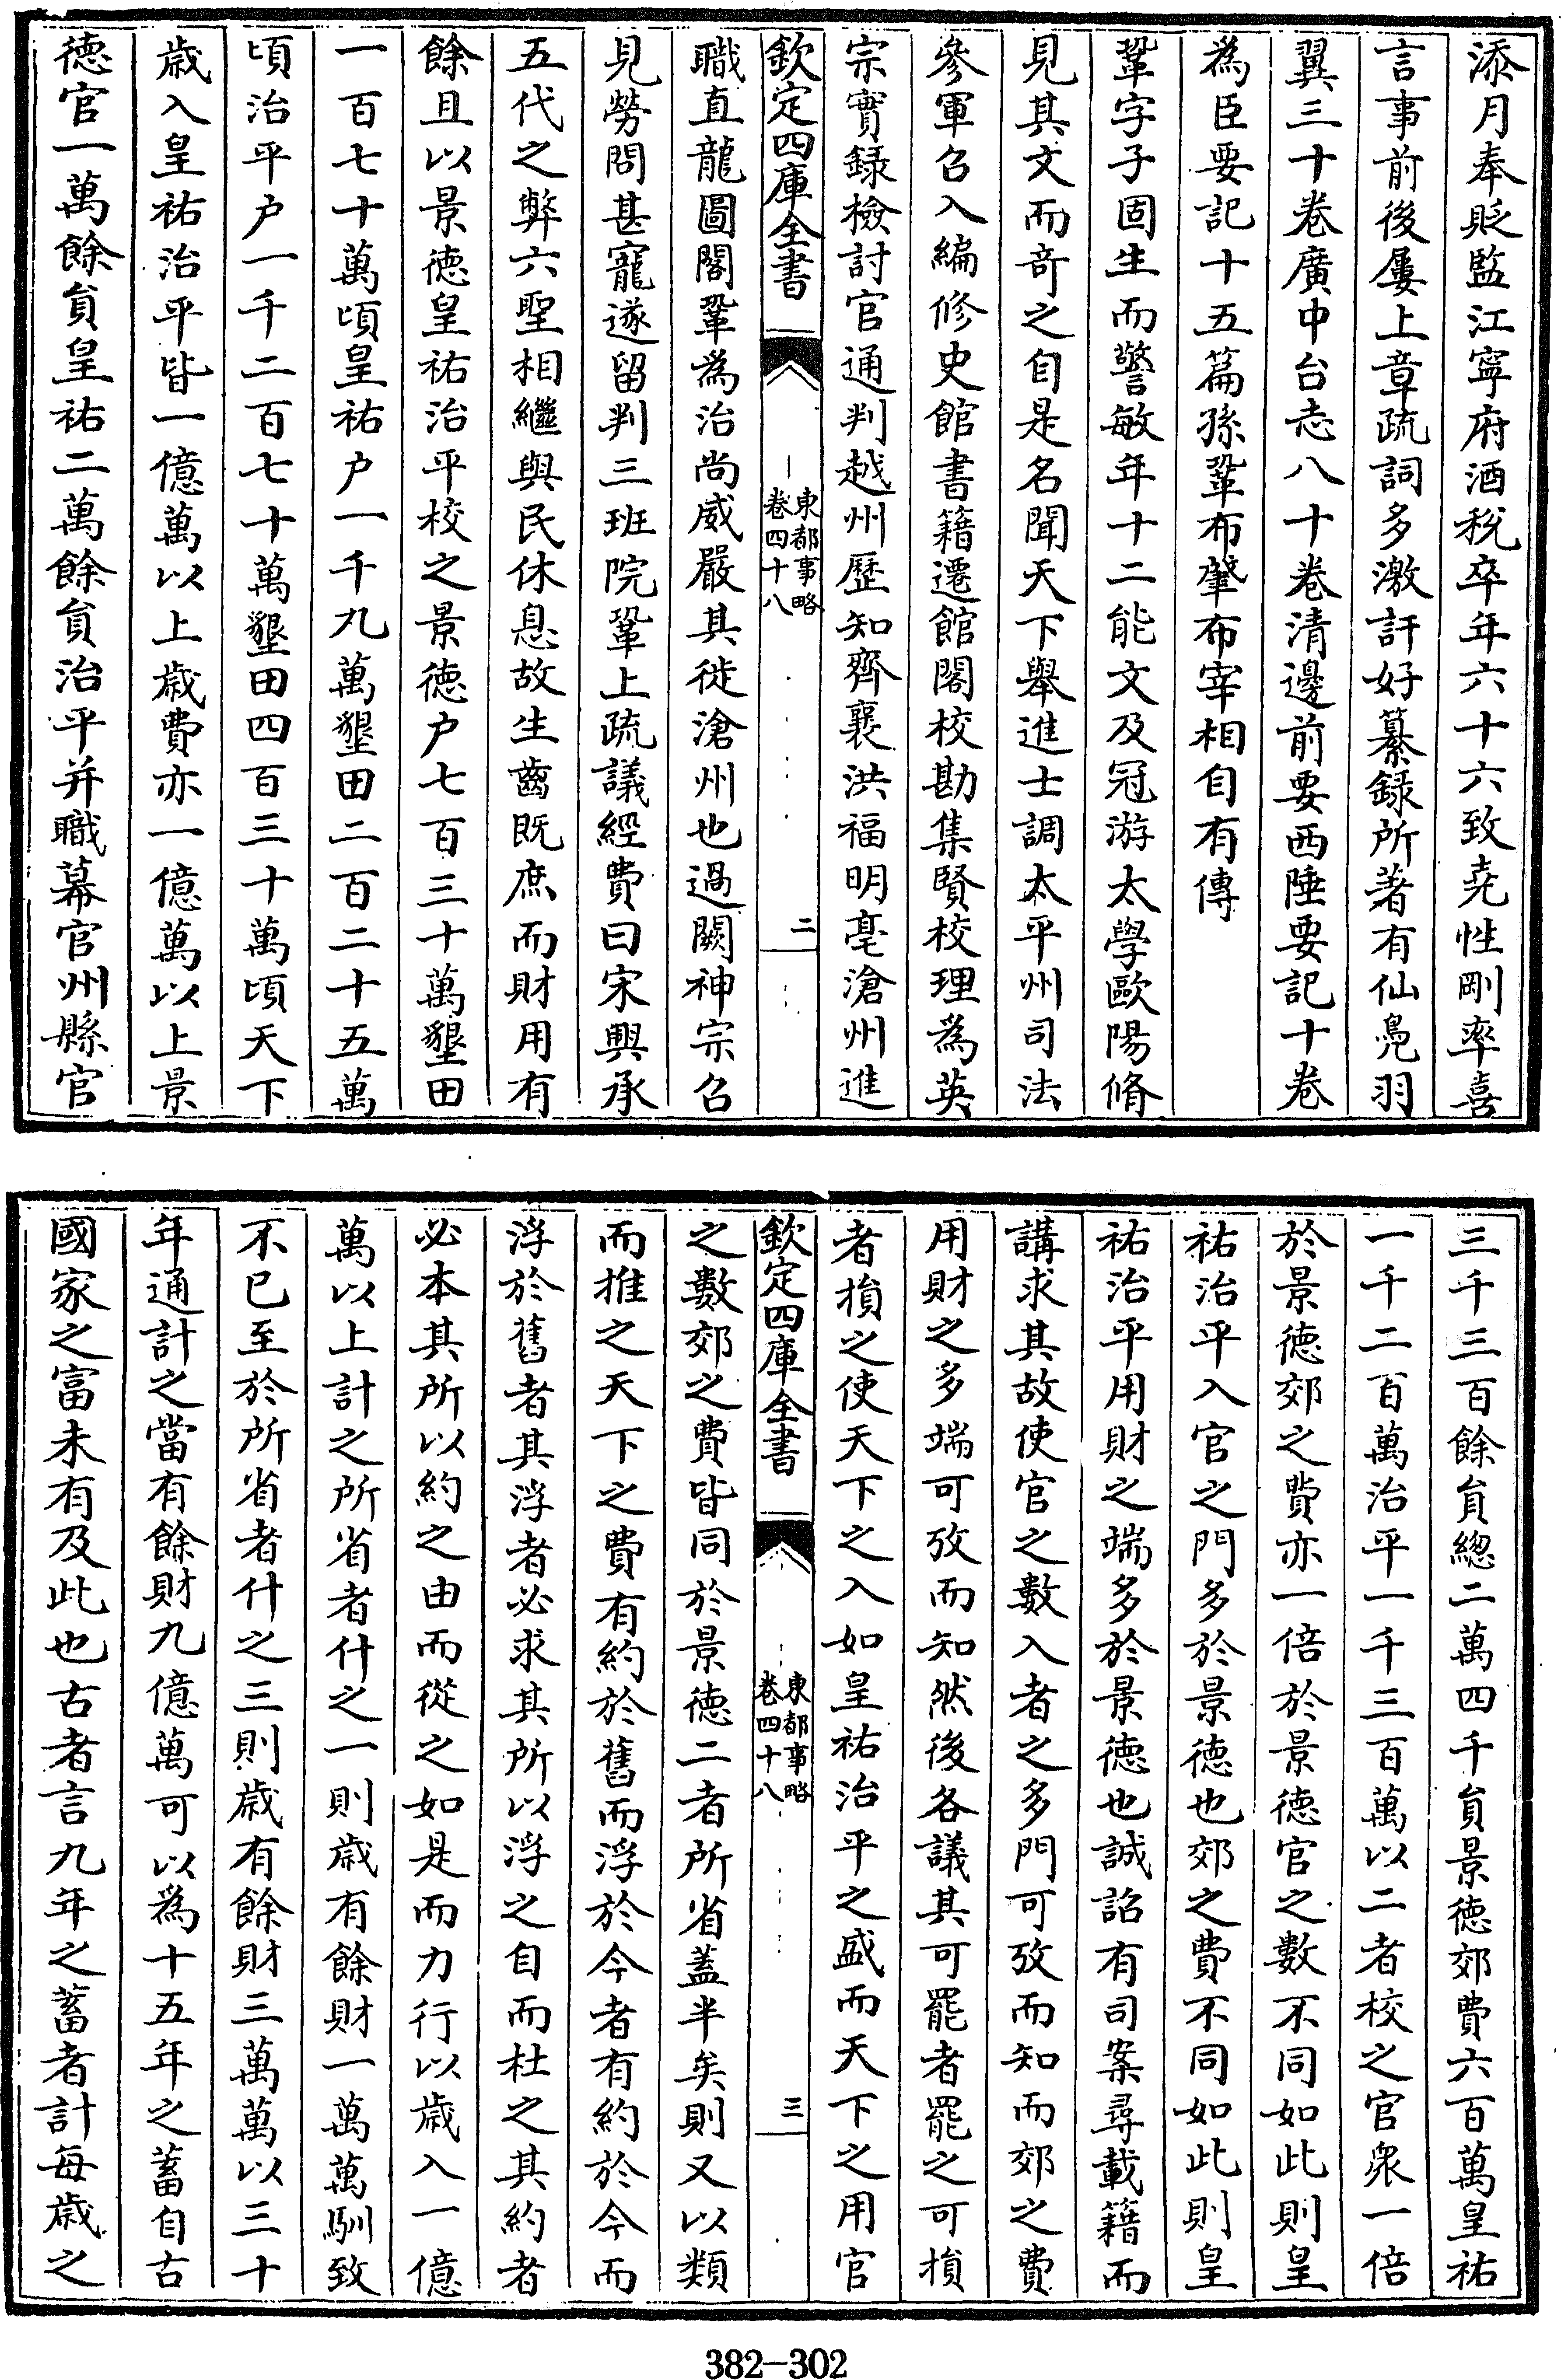 添月奉貶監江寧府酒稅卒年六十六致堯性剛率喜
言事前後屢上章疏詞多激訐好纂錄所著有仙鳧羽
翼三十卷廣中台志八十卷清邊前要西陲要記十卷
為臣要記十五篇孫鞏布肇布宰相自有傳
鞏字子固生而警敏年十二能文及冠游太學歐陽脩
見其文而竒之自是名聞天下舉進士調太平州司法
參軍召入編修史館書籍遷館閣校勘集賢校理為英
宗實錄檢討官通判越州歷知齊襄洪福明亳滄州進
欽定四庫全書
東都事略
卷四十八
二
職直龍圖閣鞏為治尚威嚴其徙滄州也過闕神宗召
見勞問甚寵遂留判三班院鞏上疏議經費曰宋興承
五代之弊六聖相繼與民休息故生齒既庶而財用有
餘且以景德皇祐治平校之景德户七百三十萬墾田
一百七十萬頃皇祐户一千九萬墾田二百二十五萬
頃治平户一千二百七十萬墾田四百三十萬頃天下
歲入皇祐治平皆一億萬以上歲費亦一億萬以上景
德官一萬餘員皇祐二萬餘員治平并職幕官州縣官
三千三百餘員總二萬四千員景德郊費六百萬皇祐
一千二百萬治平一千三百萬以二者校之官衆一倍
於景德郊之費亦一倍於景德官之數不同如此則皇
祐治平入官之門多於景德也郊之費不同如此則皇
祐治平用財之端多於景德也誠詔有司案尋載籍而
講求其故使官之數入者之多門可攷而知而郊之費
用財之多端可攷而知然後各議其可罷者罷之可損
者損之使天下之入如皇祐治平之盛而天下之用官
欽定四庫全書
東都事略
卷四十八
三
之數郊之費皆同於景德二者所省蓋半矣則又以類
而推之天下之費有約於舊而浮於今者有約於今而
浮於舊者其浮者必求其所以浮之自而杜之其約者
必本其所以約之由而從之如是而力行以歲入一億
萬以上計之所省者什之一則歲有餘財一萬萬馴致
不已至於所省者什之三則歲有餘財三萬萬以三十
年通計之當有餘財九億萬可以為十五年之蓄自古
國家之富未有及此也古者言九年之蓄者計每歲之
382-302